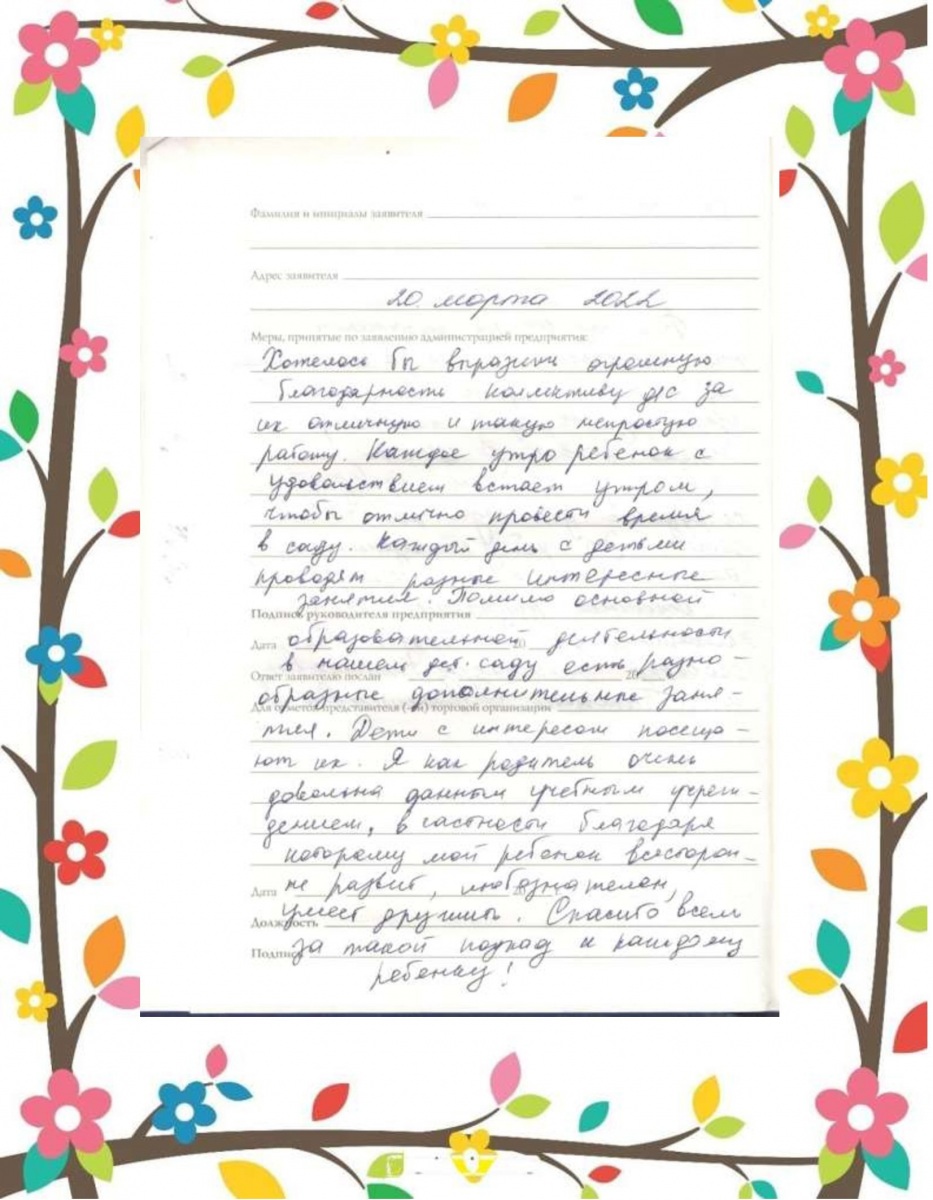 Фамилия и инициалы заявителя
Адрес заявителя
20 марта 2022
Меры, принятые по заявлению администрацией предприятия:
Хотелось бы выразить огромную
благодарность коллективу д/с за
их отличную и такую непростую
работу. Каждое утро ребенок с
удовольствием встает утром,
чтобы отлично провести время
в саду. Каждый день с детьми
проводят разные интересные
занятия. Помимо основной
Подпись руководителя предприятия
образовательной деятельности
Дата 20
в нашем дет. саду есть разно-
Ответ заявителю послан 20
образные дополнительные заня-
Для отметок представителя (-ей) торговой организации
тия. Дети с интересом посеща-
ют их. Я как родитель очень
довольна данным учебным учреж-
дением, в частности благодаря
которому мой ребенок всесторон-
Дата не развит, любознателен,
умеет дружить. Спасибо всем
Должность
за такой подход к каждому
Подпись
ребенку!